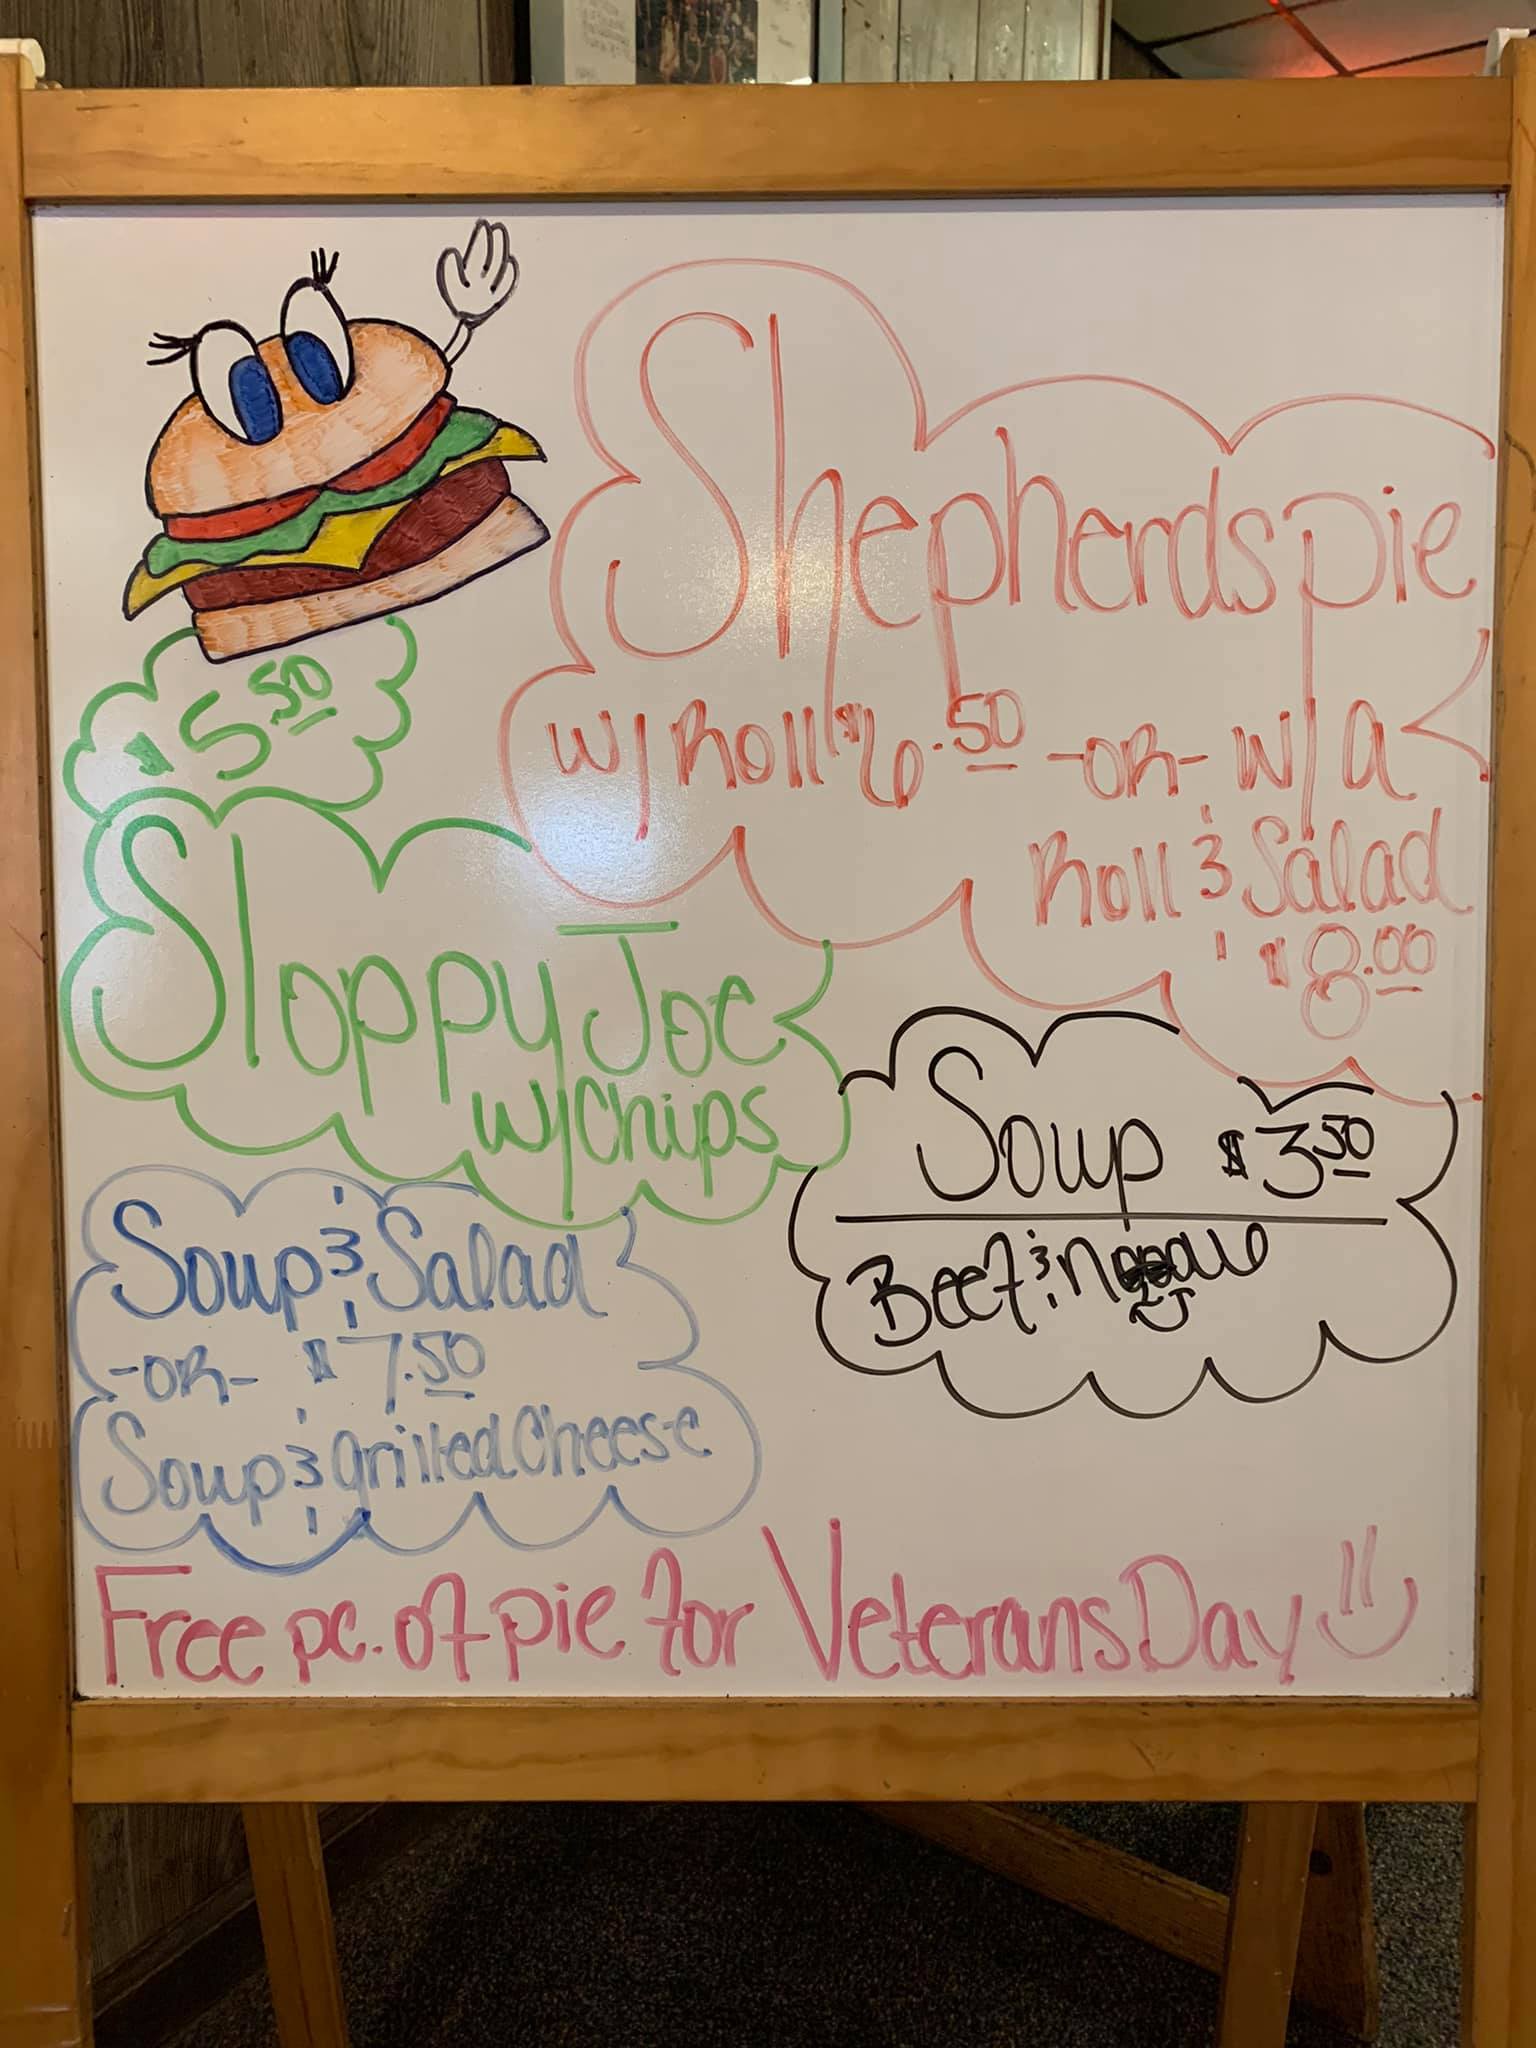 Shepherds pie
w/ Roll $6.50 -OR- w/ a
Roll & Salad
$8.00
$5.50
Sloppy Joe
w/ Chips
Soup $3.50
Beef & Noodle
Soup & Salad
-OR- $7.50
Soup & grilled Cheese
Free pc. of pie for Veterans Day